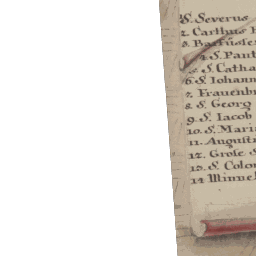 S. Severus
2. Carthus
3. Barfusser
4. S. Paul
5. S. Catha
6. S. Iohann
7. Frauenbr
8. S. Georg
9. S. Iacob
10. S. Mari
11. Augusti
12. Grose S
13. S. Colon
14 Minne